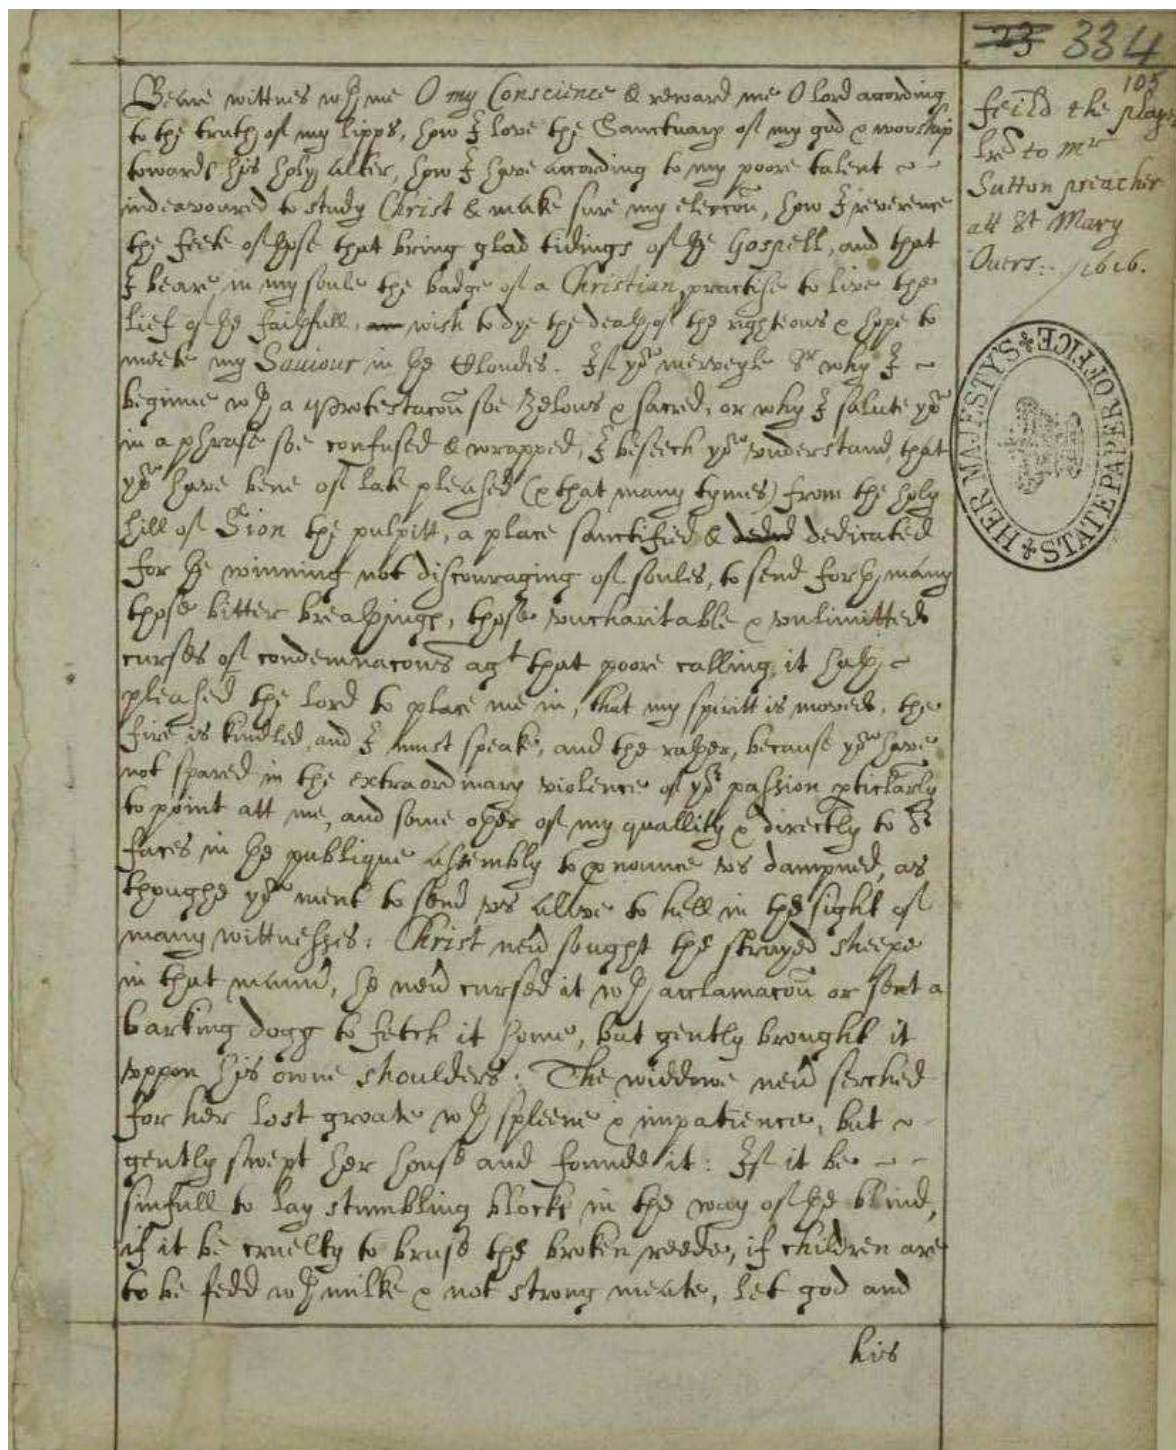 23 334
105
feild the player
lre to mr
Sutton preacher
att St Mary
Ouers: 1616.
HER MAJESTY'S STATE PAPER OFFICE
Beare wittnes wth me O my Conscience & reward me O lord according
to the truth of my lipps, how I love the Sanctuary of my god & worship
towards his holy alter, how I have according to my poore talent
indeavoured to study Christ & make sure my eleccōn, how I reverence
the feete of those that bring glad tidings of the Gospell, and that
I beare in my soule the badge of a Christian, practise to live the
lief of the faithfull, wish to dye the death of the righteous & hope to
meete my Saviour in the Cloudes. If you merveyle Sr why I
beginne wth a protestacōn soe zelous & sacred, or why I salute you
in a phrase soe confused & wrapped, I beseech you understand, that
you have bene of late pleased (& that many tymes) from the holy
hill of Sion the pulpitt, a place sanctified & deded dedicated
for the winning not discouraging of soules, to send forth many
those bitter breathings, those vncharitable & vnlimitted
curses of condemnacōns agt that poore calling, it hath
pleased the lord to place me in, that my spiritt is moved, the
fire is kindled, and I must speake, and the rather, because you have
not spared in the extraordinary violence of yor passion pticlarly
to point att me, and some other of my quallity & directly to or
faces in the publique assembly to pnounce vs dampned, as
thoughe you ment to send vs alive to hell in the sight of
many wittnesses: Christ nevr sought the strayed sheepe
in that mannr, he nevr cursed it wth acclamacōn or sent a
barking dogg to fetch it home, but gently brought it
vppon his owne shoulders: The widdowe nevr serched
for her lost groate wth spleene & impatience, but
gently swept her house and founde it: If it be
sinfull to lay stumbling blocks in the way of the blind,
if it be cruelty to bruse the broken reede, if children are
to be fedd wth milke & not strong meate, let god and
his